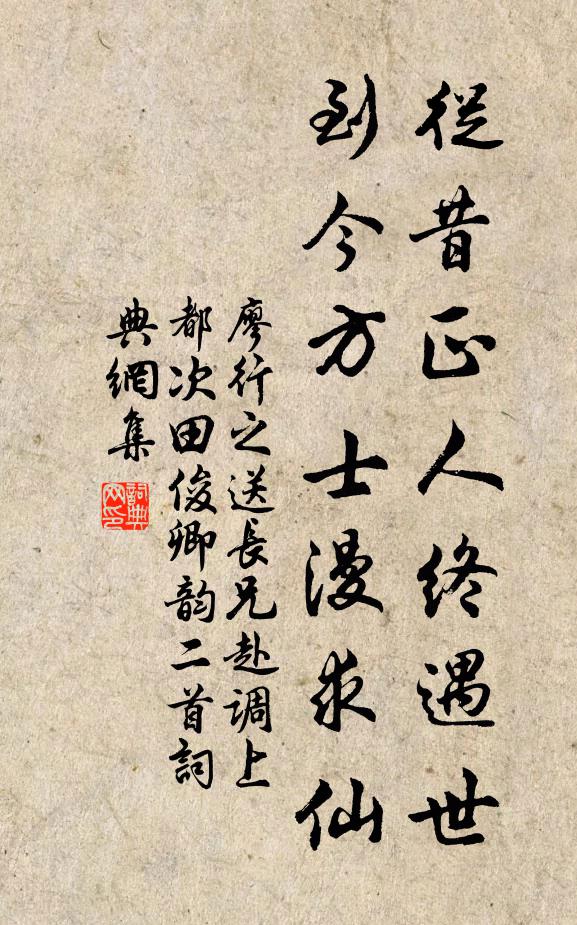 從昔正人終遇世
到今方士漫求仙
廖行之送長兄赴調上
都次田俊卿韵二首詞
典網集
詞典
网印